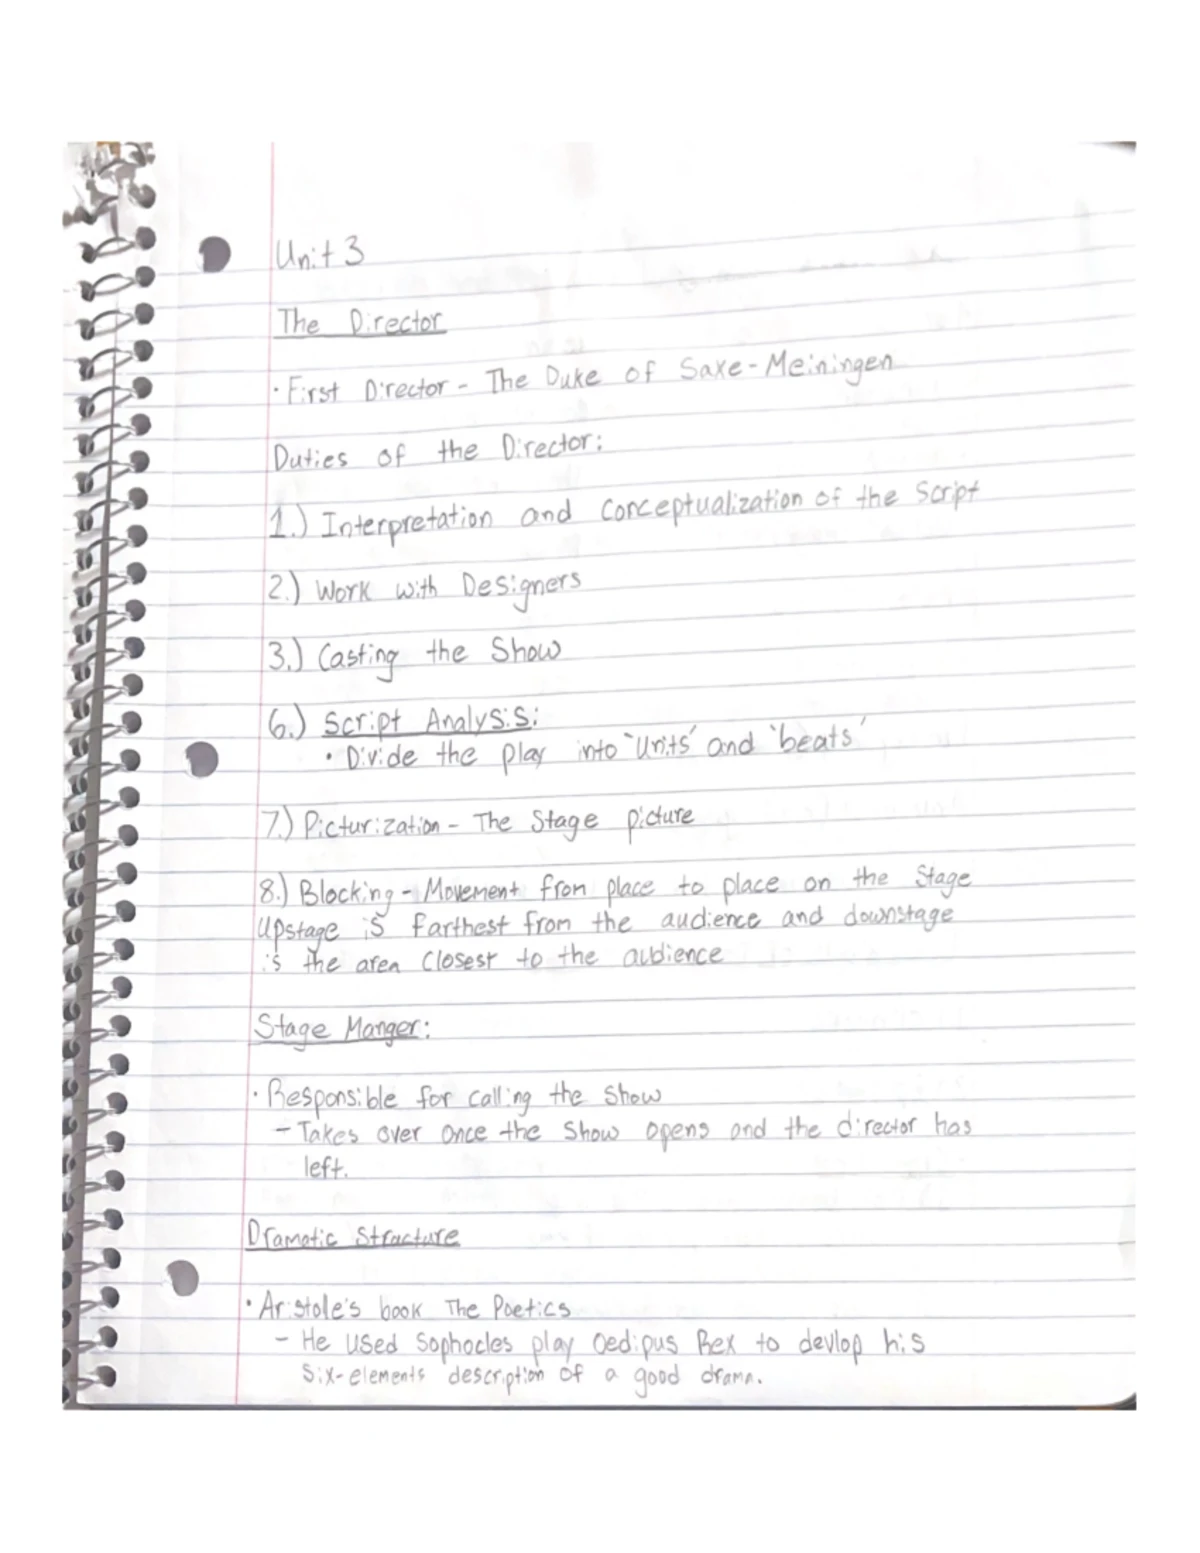 Unit 3
The Director
· First Director - The Duke of Saxe-Meiningen
Duties of the Director:
1.) Interpretation and conceptualization of the Script
2.) Work with Designers
3.) Casting the Show
6.) Script Analysis:
• Divide the play into 'units' and 'beats'
7.) Picturization - The Stage picture
8.) Blocking - Movement from place to place on the Stage
Upstage is farthest from the audience and downstage
is the area closest to the audience
Stage Manger:
· Responsible for calling the Show
- Takes over once the Show opens and the director has
left.
Dramatic Structure
· Aristole's book The Poetics
- He used Sophocles play Oedipus Rex to devlop his
Six-elements description of a good drama.